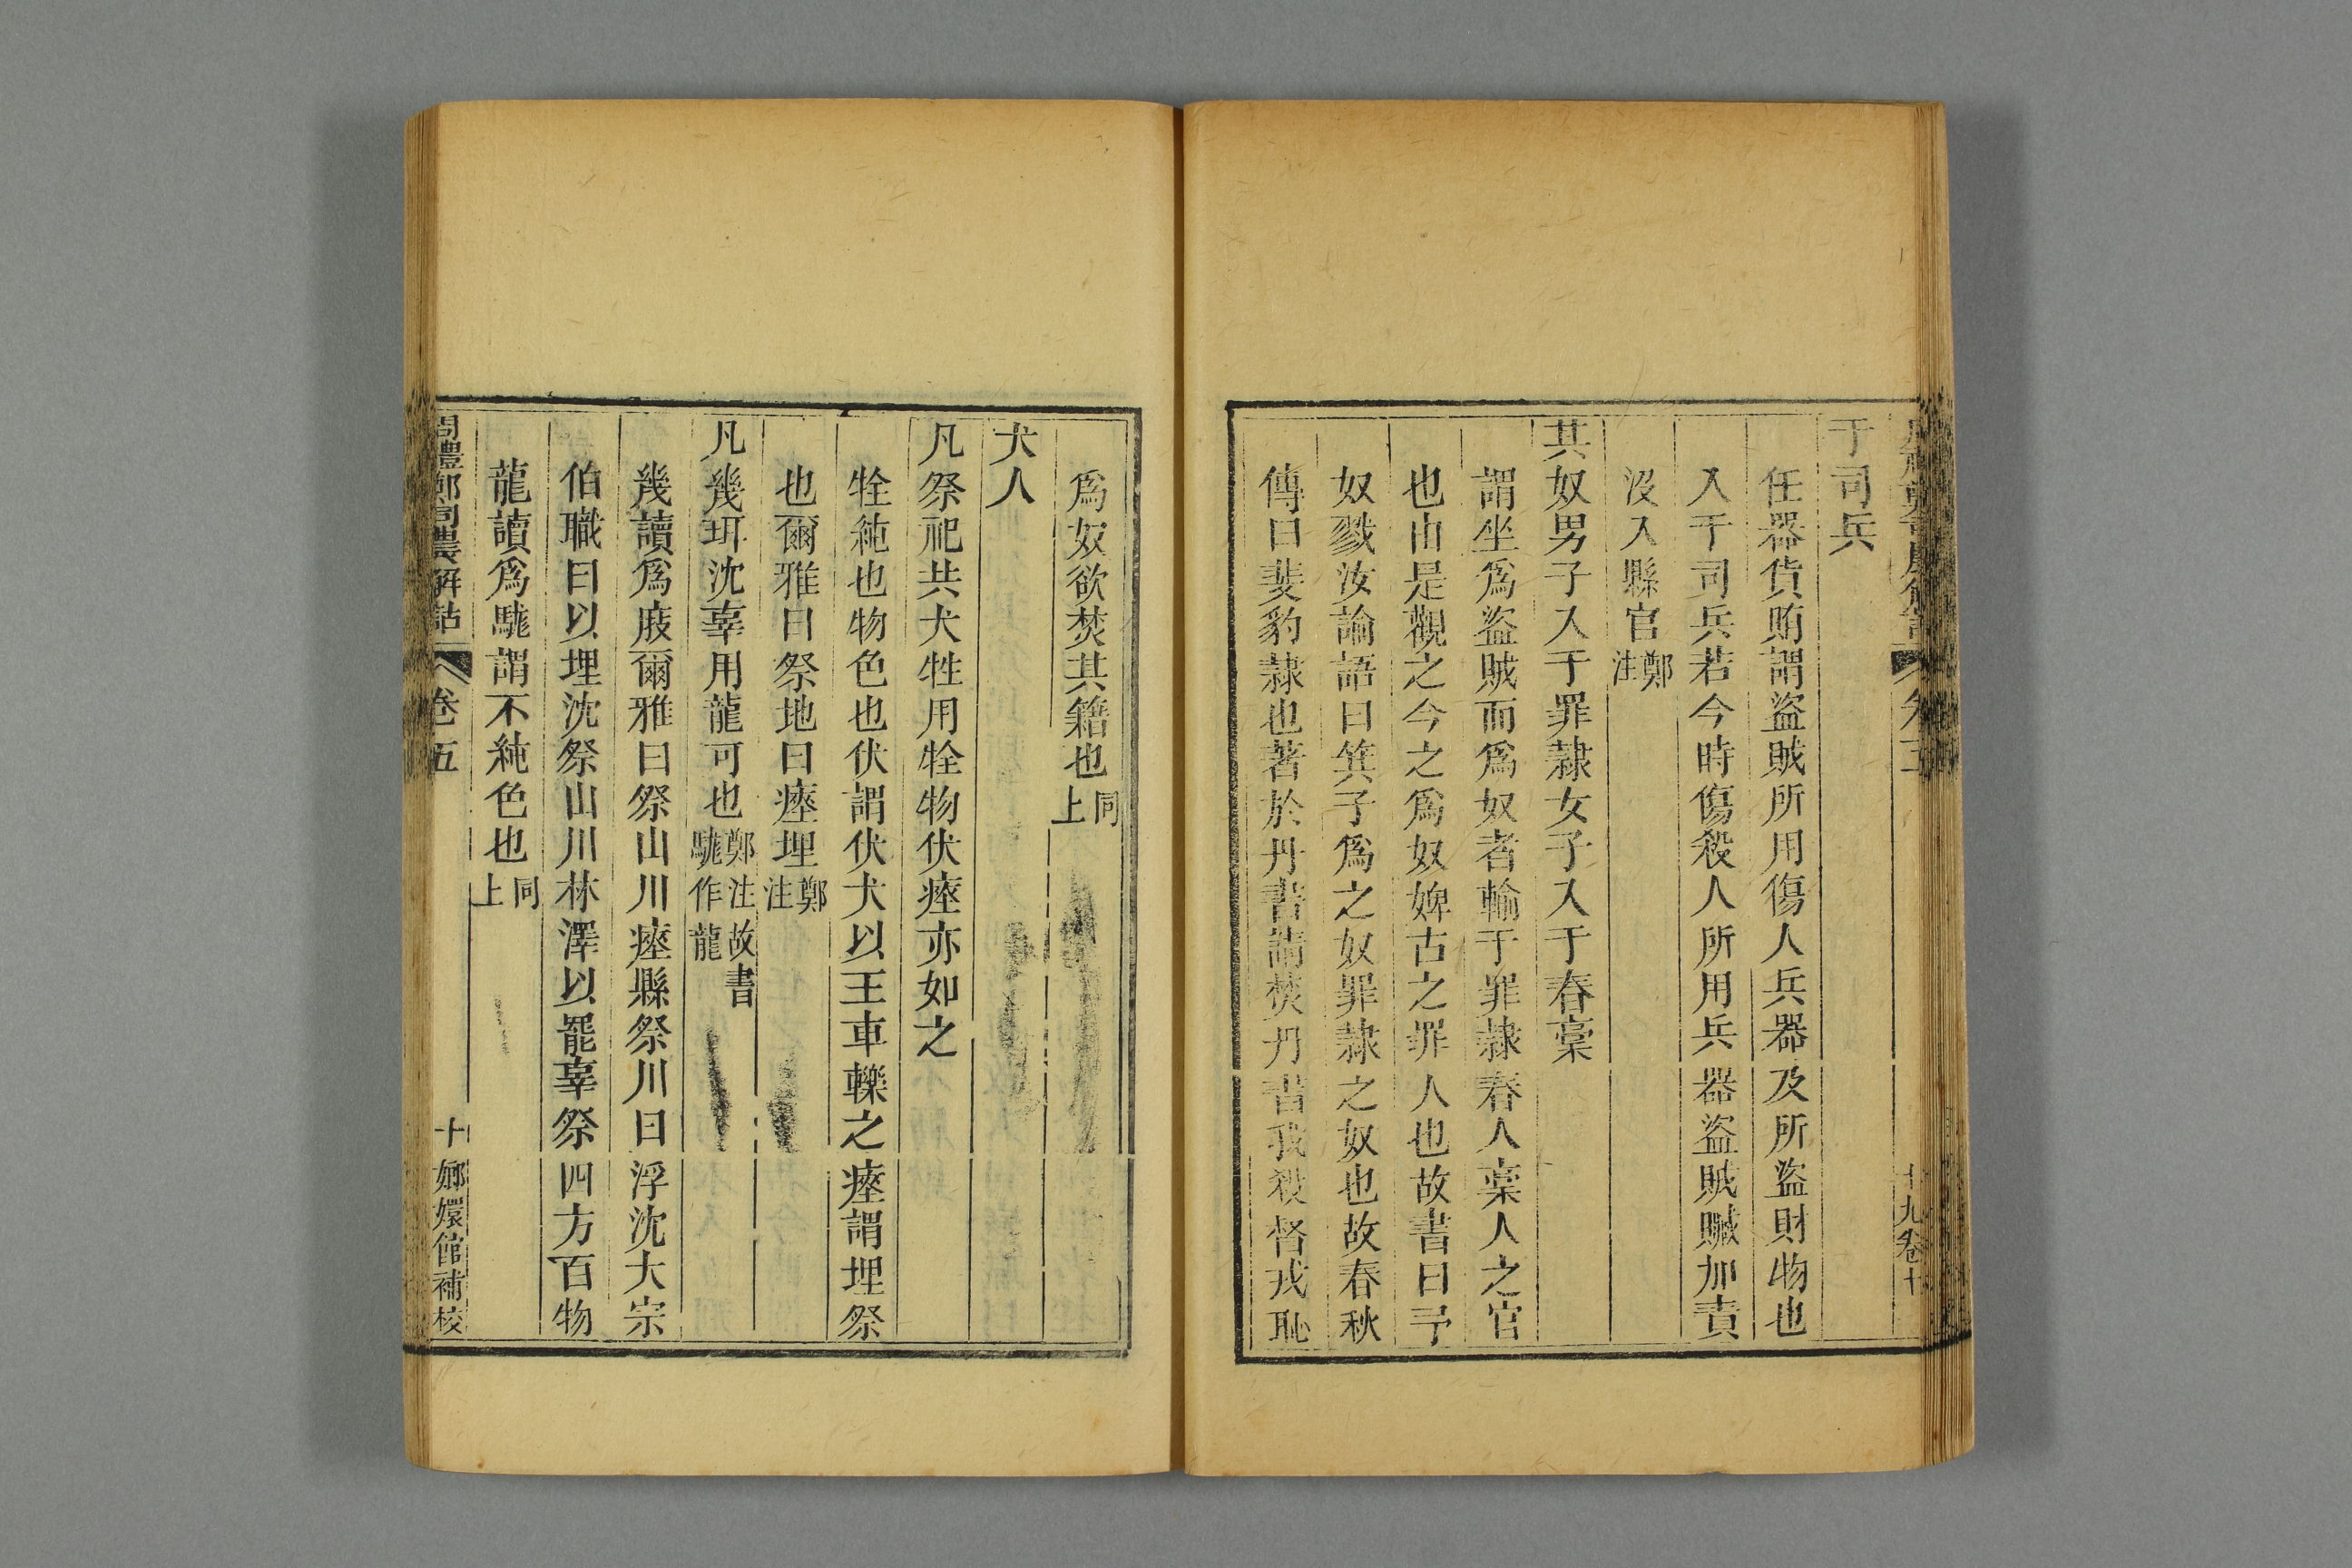 于司兵
任器貨賄謂盜賊所用傷人兵器及所盜財物也
入于司兵若今時傷殺人所用兵器盜賊贓加責
沒入縣官鄭注
其奴男子入于罪隸女子入于舂稾
謂坐爲盜賊而爲奴者輸于罪隸舂人稾人之官
也由是觀之今之爲奴婢古之罪人也故書曰予
奴戮汝論語曰箕子爲之奴罪隸之奴也故春秋
傳曰斐豹隸也著於丹書請焚丹書我殺督戎恥
爲奴欲焚其籍也同上
犬人
凡祭祀共犬牲用牷物伏瘞亦如之
牷純也物色也伏謂伏犬以王車轢之瘞謂埋祭
也爾雅曰祭地曰瘞埋鄭注
凡幾珥沈辜用龍可也鄭注故書駹作龍
幾讀爲庪爾雅曰祭山川瘞縣祭川曰浮沈大宗
伯職曰以埋沈祭山川林澤以罷辜祭四方百物
龍讀爲駹謂不純色也同上
周禮鄭司農解詁 卷五 十 嫏嬛館補校